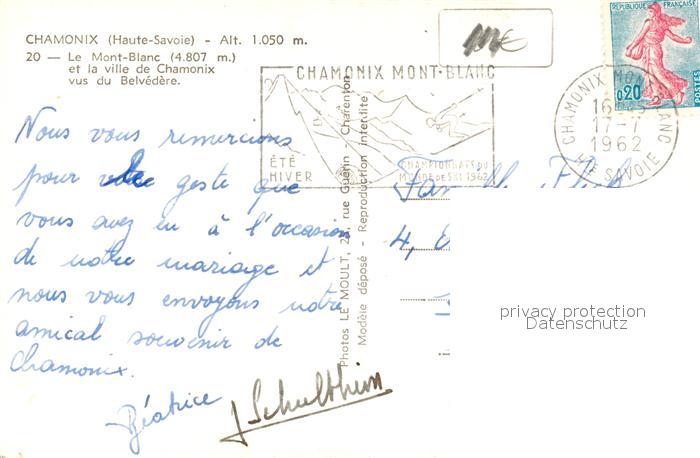 CHAMONIX (Haute-Savoie) - Alt. 1.050 m.
20 — Le Mont-Blanc (4.807 m.)
et la ville de Chamonix
vus du Belvédère.
Nous vous remercions
pour votre geste que
vous avez eu à l'occasion
de notre mariage et
nous vous envoyons notre
amical souvenir de
Chamonix.
Béatrice J Schulthess
Photos LE MOULT, rue Guérin - Charenton
Modèle déposé - Reproduction interdite
CHAMONIX MONT-BLANC
ÉTÉ
HIVER
CHAMPIONNATS DU
MONDE DE SKI 1962
RÉPUBLIQUE FRANÇAISE
0,20
POSTES
CHAMONIX MONT BLANC
17-7
1962
HTE SAVOIE
4,
privacy protection
Datenschutz